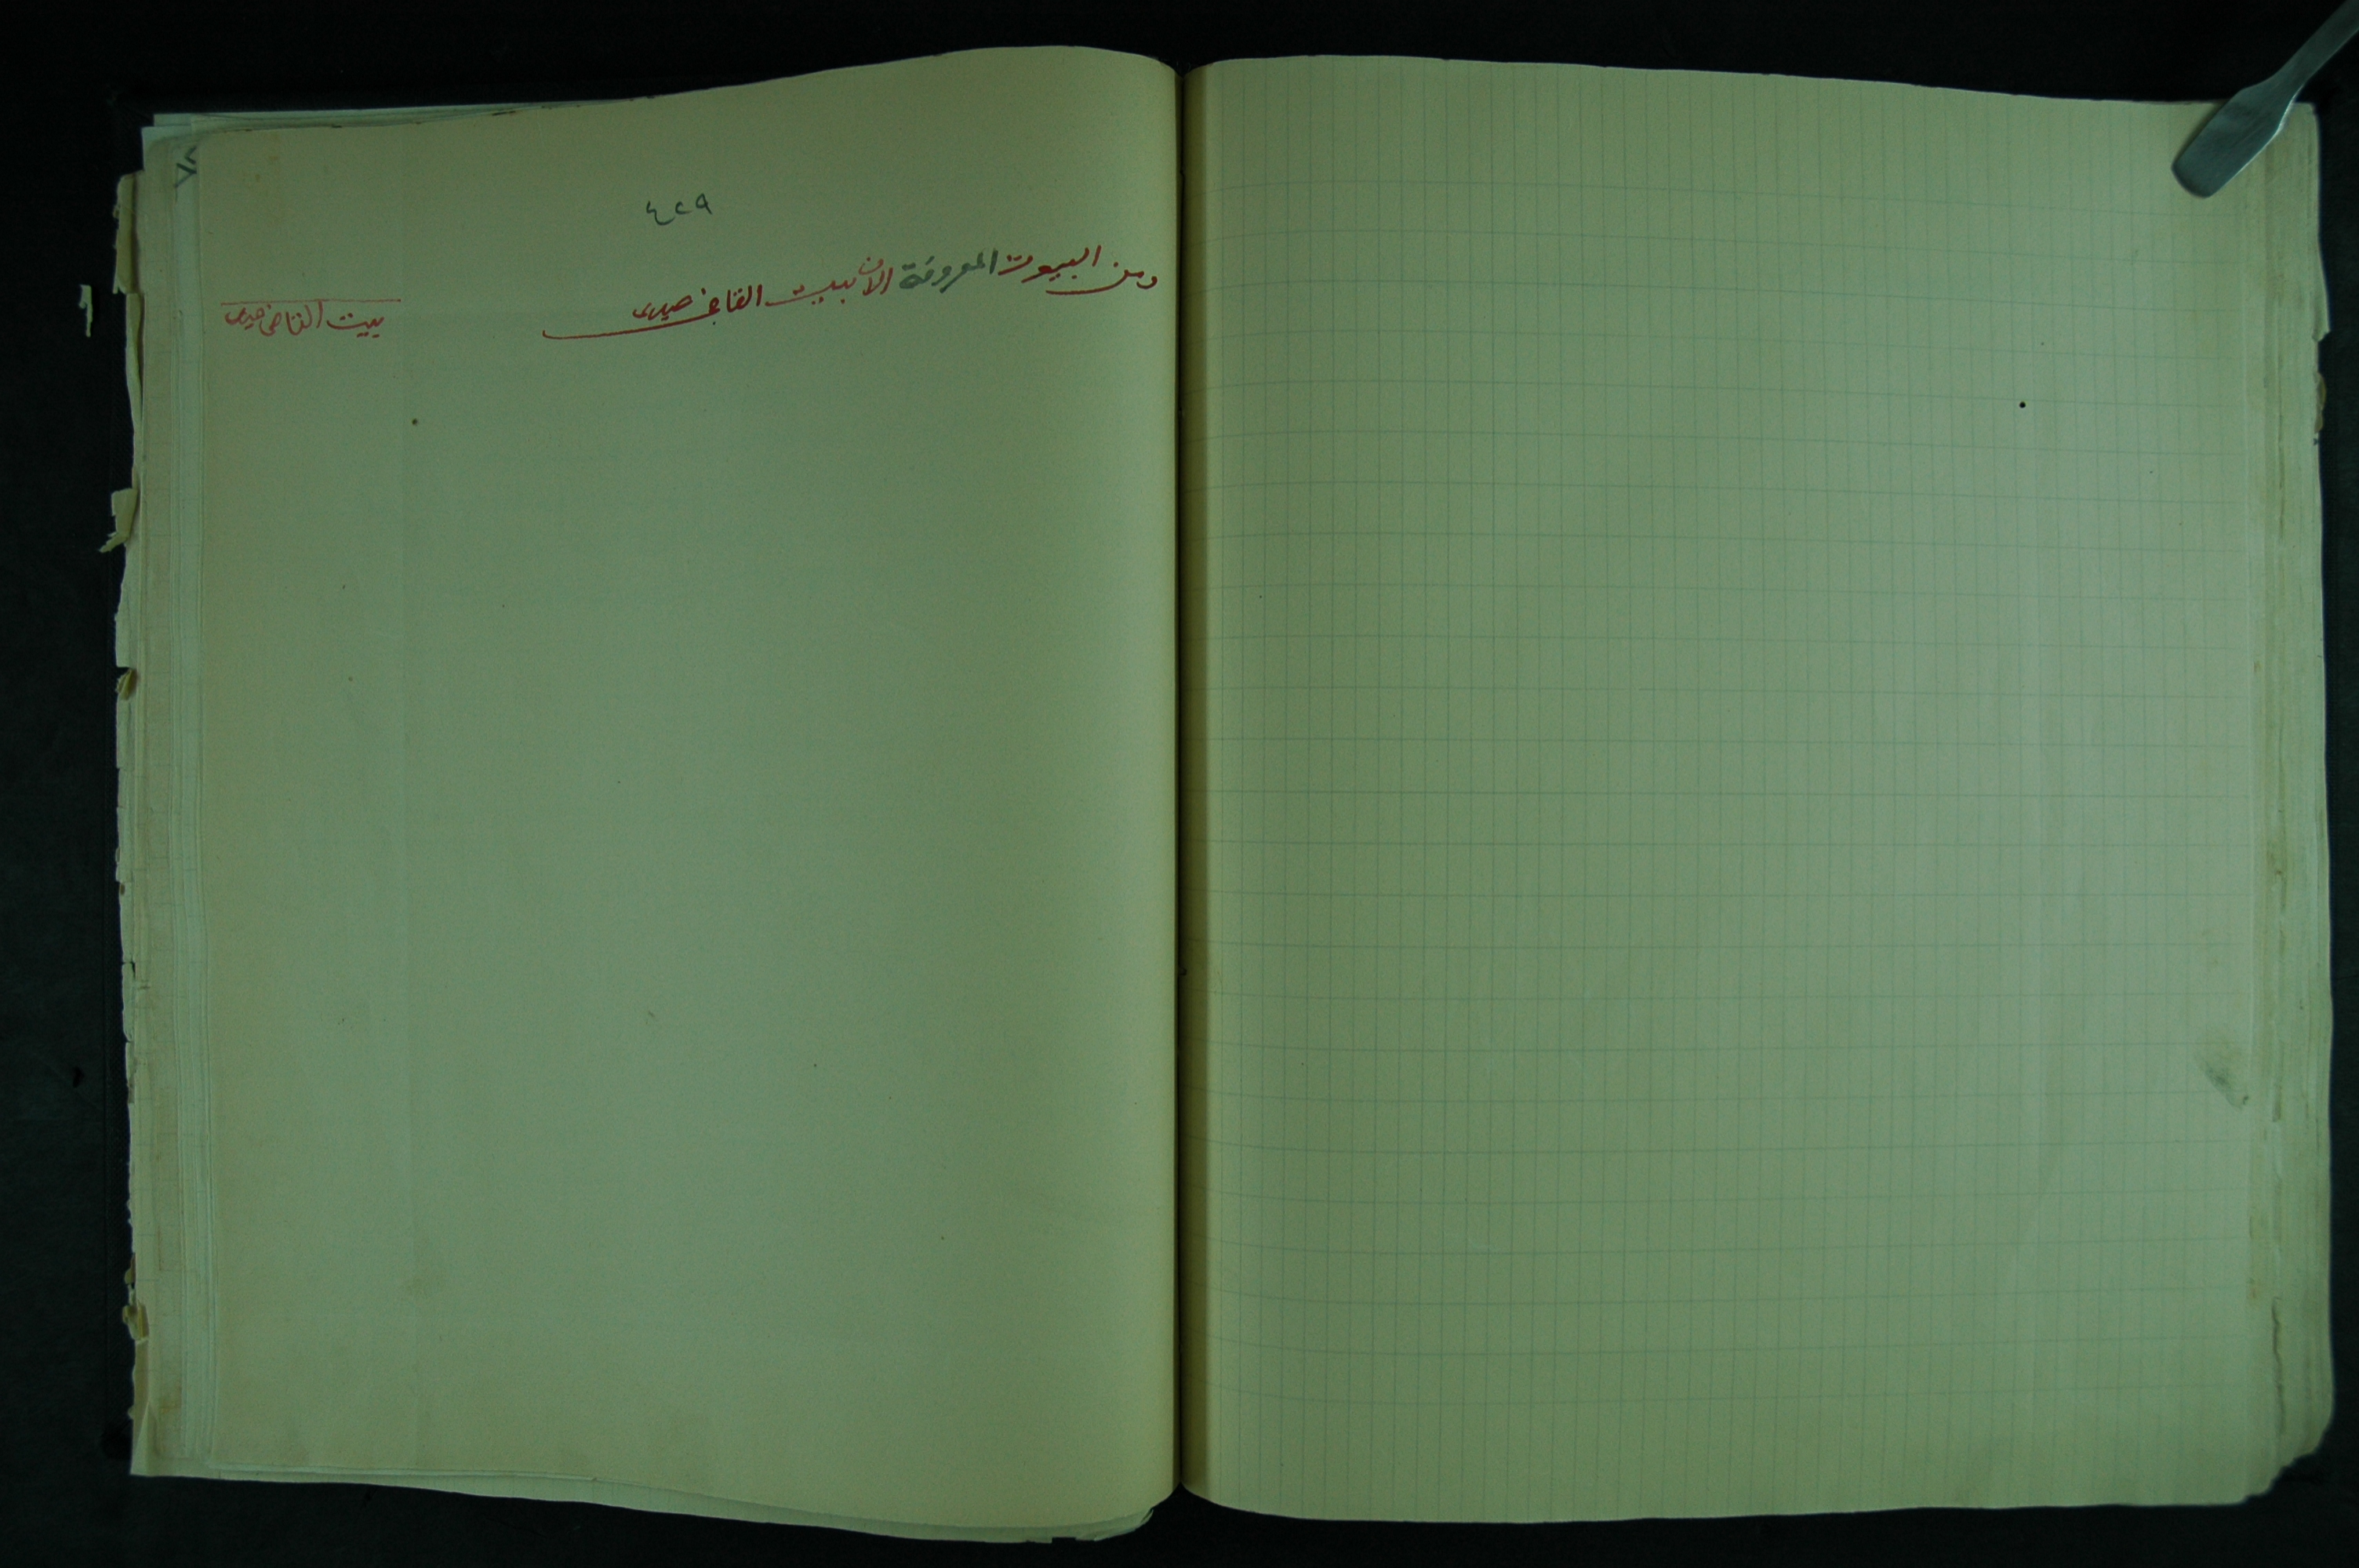 ٤٢٩
ومن البيوت المعروفة الآن ببيت القاضي
بيت القاضي